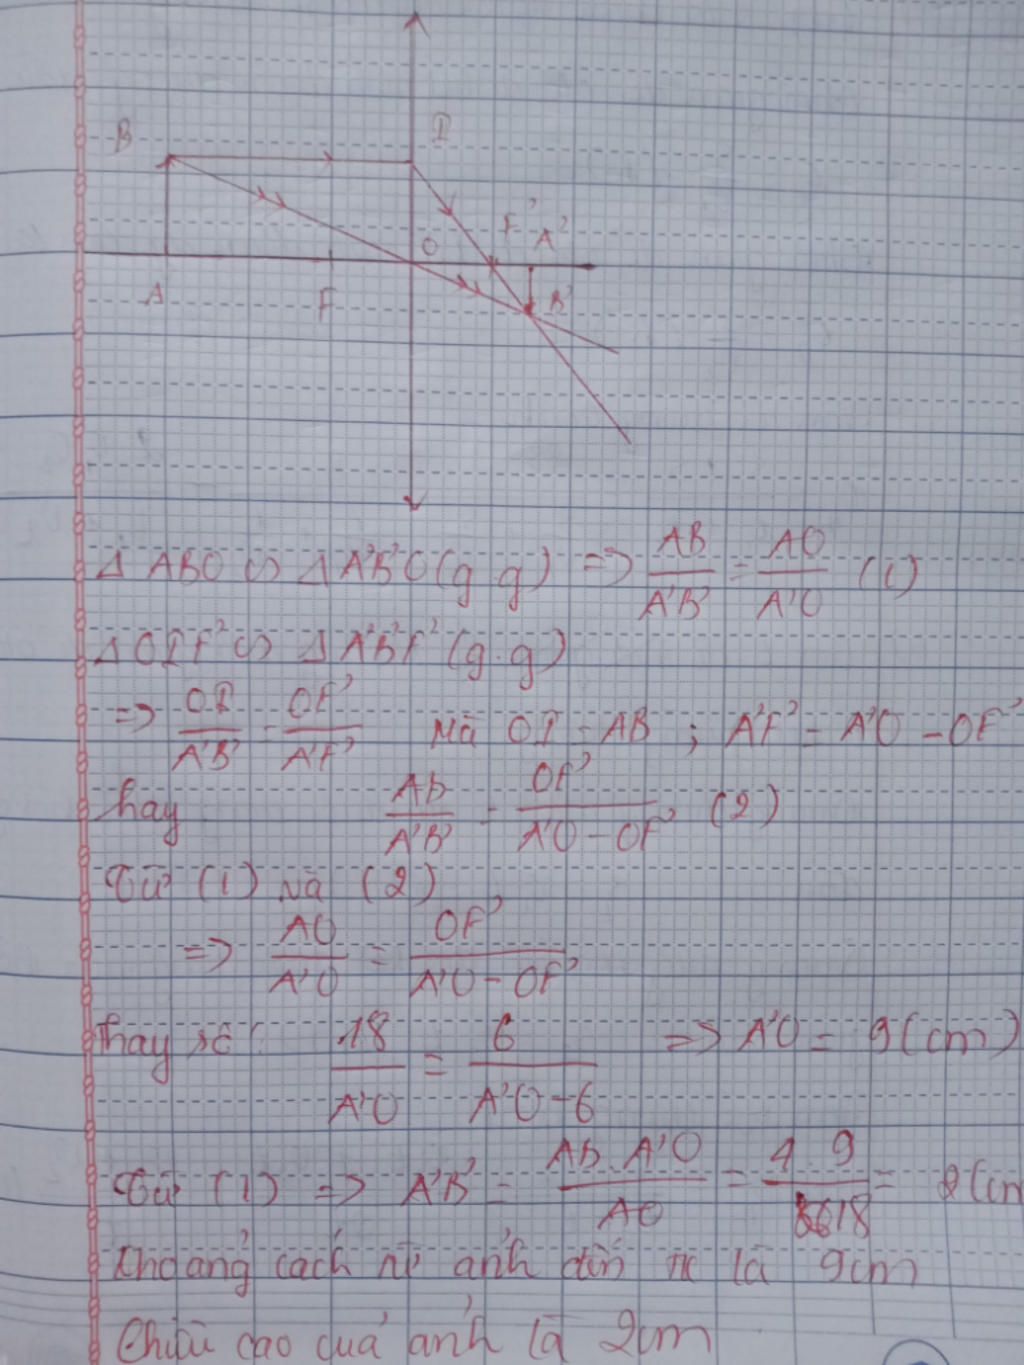 B I
F' A'
O
A F B'
Δ ABO ∽ Δ A'B'O (g.g) => AB/A'B' = AO/A'O (1)
Δ OIF' ∽ Δ A'B'F' (g.g)
=> OI/A'B' = OF'/A'F' Mà OI = AB ; A'F' = A'O - OF'
hay AB/A'B' = OF'/A'O - OF' (2)
Từ (1) và (2)
=> AO/A'O = OF'/A'O - OF'
Thay số: 18/A'O = 6/A'O - 6 => A'O = 9 (cm)
Từ (1) => A'B' = AB.A'O/AO = 4.9/18 = 2 (cm
Khoảng cách từ ảnh đến TK là 9cm
Chiều cao của ảnh là 2cm